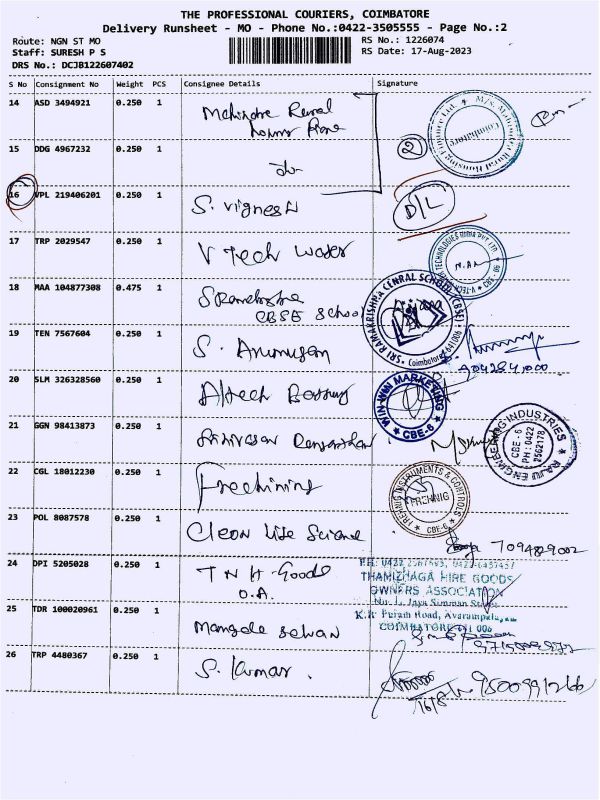 THE PROFESSIONAL COURIERS, COIMBATORE
Delivery Runsheet - MO - Phone No.:0422-3505555 - Page No.:2
Route: NGN ST MO
Staff: SURESH P S
DRS No.: DCJB122607402
RS No.: 1226074
RS Date: 17-Aug-2023
S No Consignment No Weight PCS Consignee Details Signature
14 ASD 3494921 0.250 1
Mahindra Rural
Home Finance
M/s. Mahindra Rural Housing Finance Ltd.
Coimbatore
2
15 DDG 4967232 0.250 1
do
16 VPL 219406201 0.250 1
S. Vignesh
D/L
17 TRP 2029547 0.250 1
V Tech Water
V-TECH TECHNOLOGIES INDIA PVT LTD
18 MAA 104877308 0.475 1
S Ramakrishna
CBSE School
SRI RAMAKRISHNA CENRAL SCHOOL (CBSE)
Coimbatore-641006
19 TEN 7567604 0.250 1
S. Arumugam
9042841000
20 SLM 326328560 0.250 1
WIN-WIN MARKETING
CBE-6
21 GGN 98413873 0.250 1
Srinivasan
RAJU ENGINEERING INDUSTRIES
CBE - 6
PH : 0422
2562178
22 CGL 18012230 0.250 1
FREHNIG INSTRUMENTS & CONTROLS
FREHNIG
CBE-6
23 POL 8087578 0.250 1
Clean Life Science
7094829002
24 DPI 5205028 0.250 1
T N H-Goods
O.A.
THAMIZHAGA HIRE GOODS
OWNERS ASSOCIATION
K.R Puram Road, Avarampalayam
COIMBATORE-641 006
25 TDR 100020961 0.250 1
Mangale Selvan
26 TRP 4480367 0.250 1
S. Kumar.
16/8
9500991266